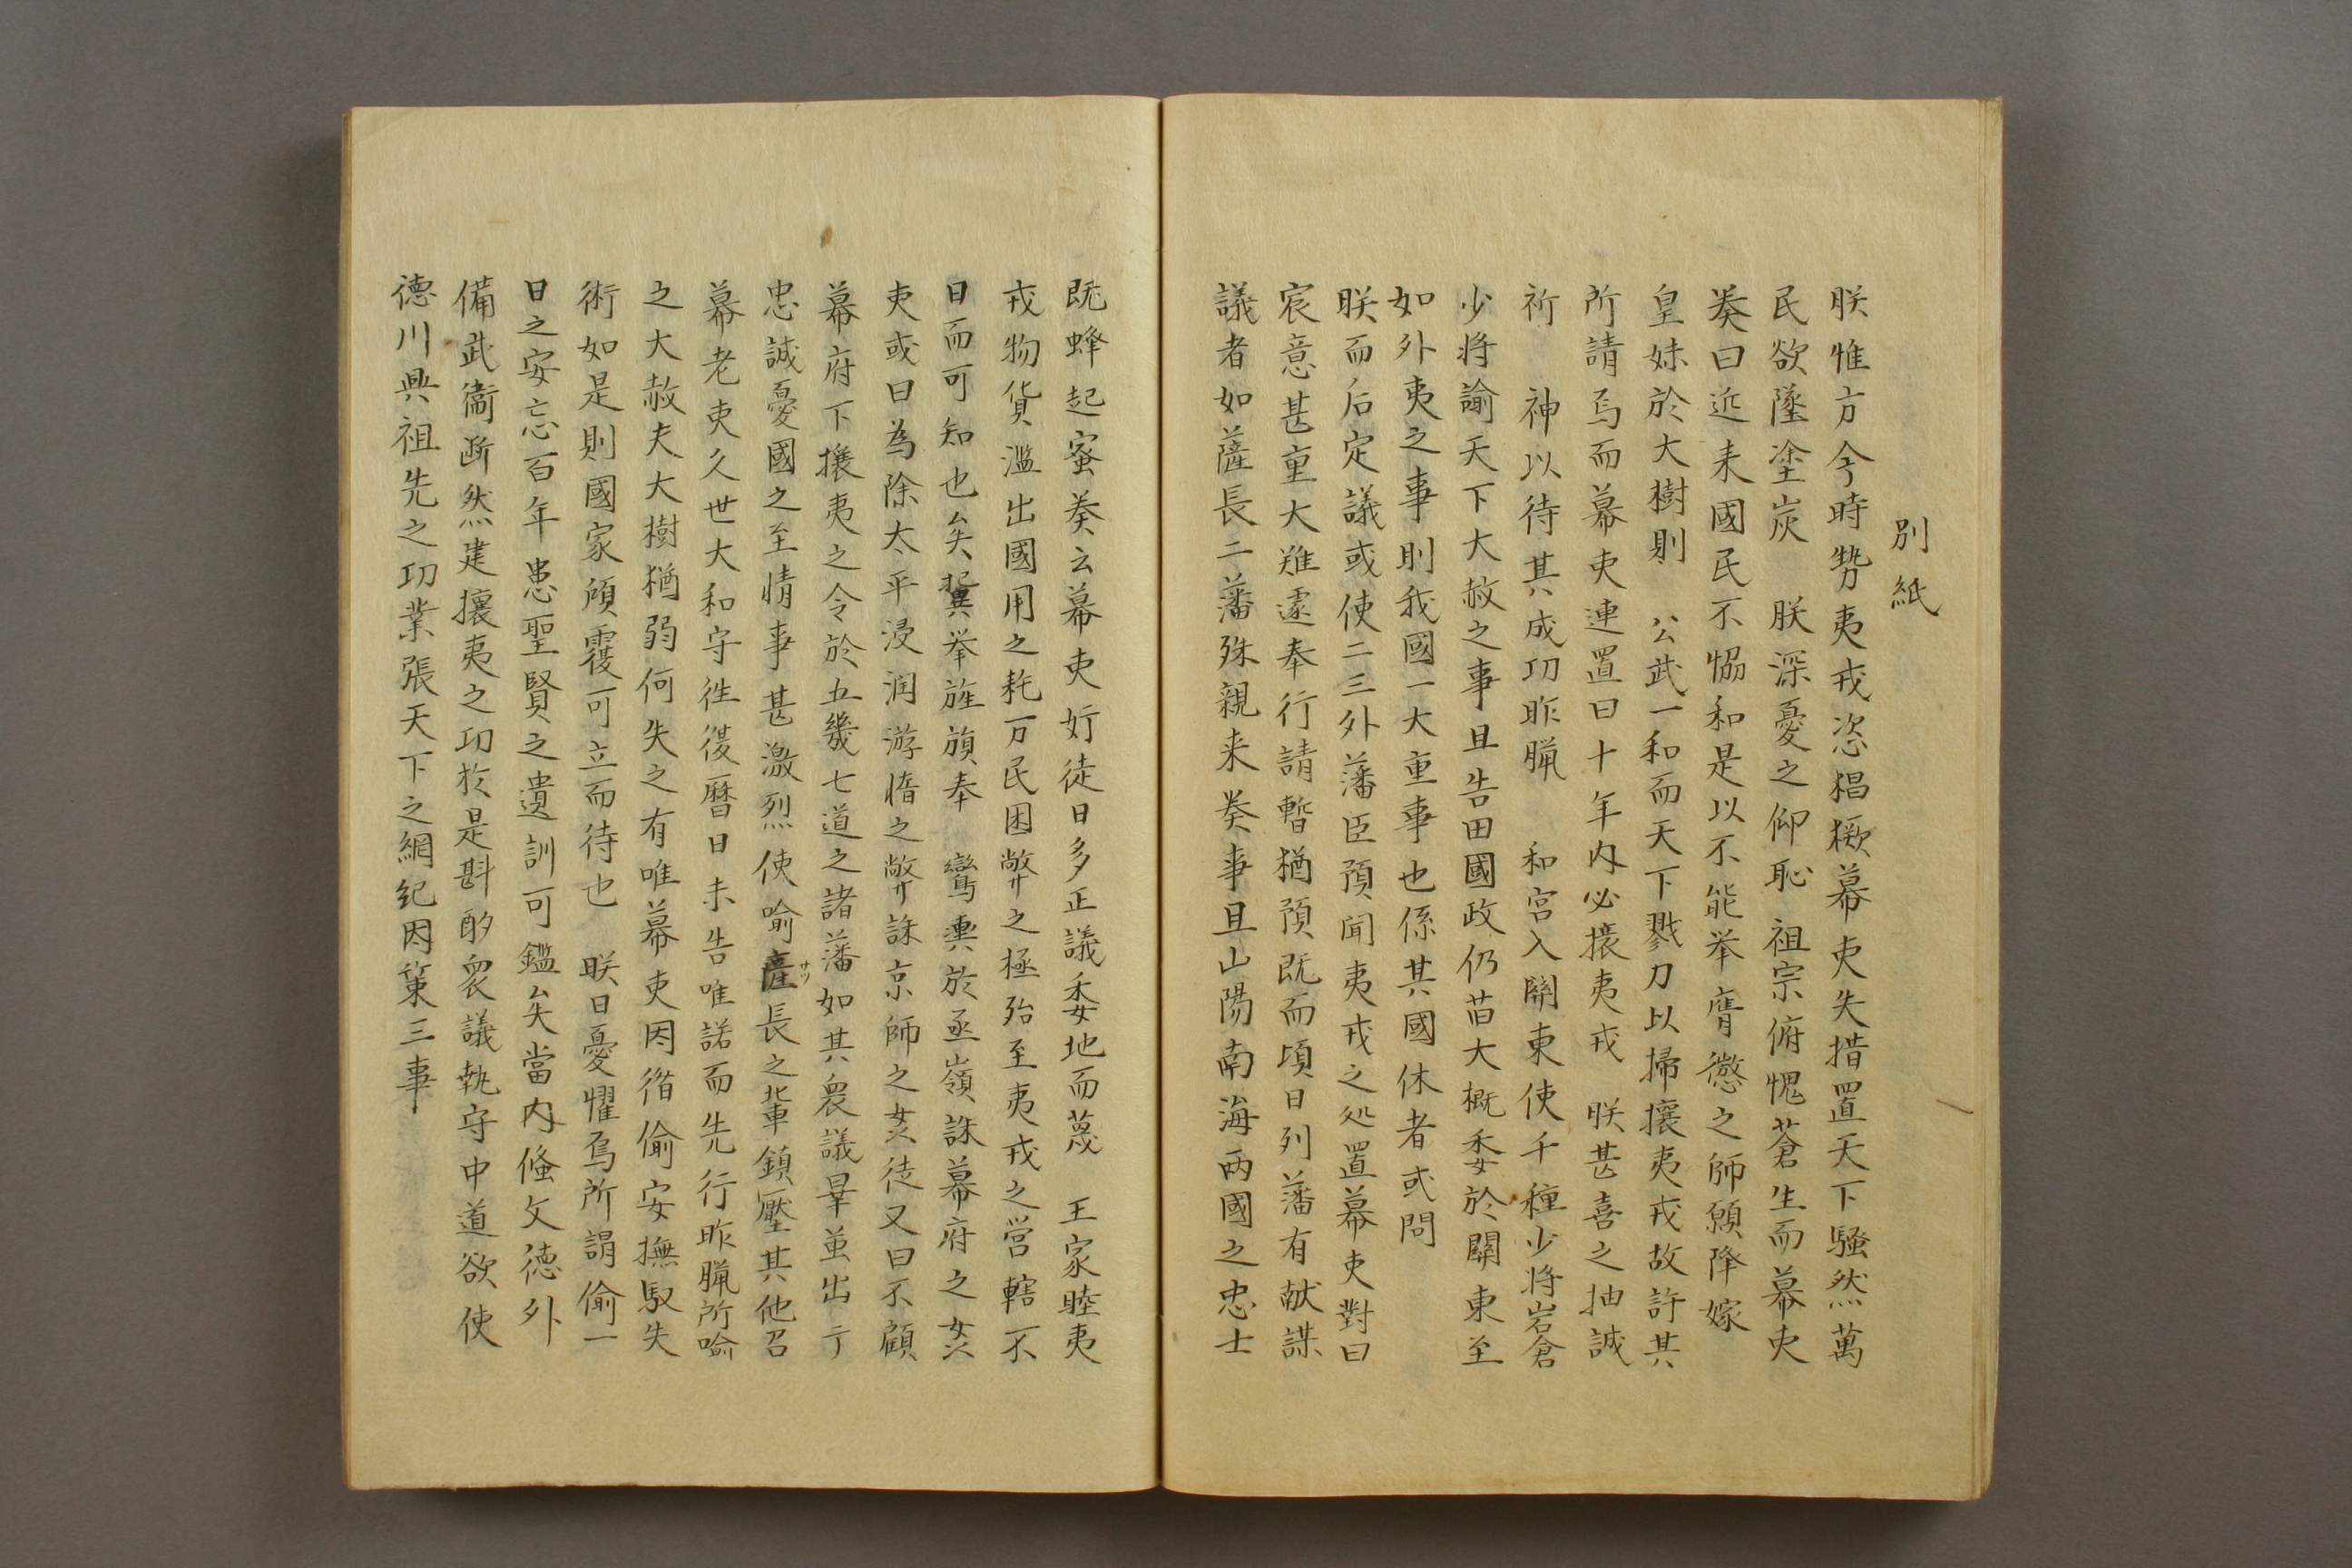 別紙
朕惟方今時勢夷戎恣猖橛幕吏失措置天下騷然萬
民欲墜塗炭　朕深憂之仰恥祖宗俯愧蒼生而幕吏
奏曰近来國民不恊和是以不能举膺懲之師願降嫁
皇妹於大樹則　公武一和而天下戮力以掃攘夷戎故許其
所請焉而幕吏連置曰十年内必攘夷戎　朕甚喜之抽誠
祈　神以待其成功昨臘　和宮入關東使千種少将岩倉
少将諭天下大赦之事且告田國政仍旧大概委於關東至
如外夷之事則我國一大重事也係其國体者或問
朕而后定議或使二三外藩臣預聞夷戎之処置幕吏對曰
宸意甚重大難遽奉行請暫猶預既而頃日列藩有献謀
議者如薩長二藩殊親来奏事且山陽南海西國之忠士
既蜂起蜜奏云幕吏奸徒日多正議委地而蔑　王家睦夷
戎物貨濫出國用之耗万民困弊之極殆至夷戎之営轄不
日而可知也矣冀举旌旗奉　鸞輿於函嶺誅幕府之奸
吏或曰為除太平浸润游惰之弊誅京師之奸徒又曰不顧
幕府下攘夷之令於五畿七道之諸藩如其衆議畢並出于
忠誠憂國之至情事甚激烈使喻薩サツ長之輩鎮壓其他召
幕老吏久世大和守往復曆日未告唯諾而先行昨臘所喻
之大赦夫大樹猶弱何失之有唯幕吏因循偷安撫馭失
術如是則國家顛覆可立而待也　朕日憂懼焉所謂偷一
日之安忘百年患聖賢之遺訓可鑑矣當内脩文徳外
備武衞断然建攘夷之功於是斟酌衆議執守中道欲使
德川興祖先之功業張天下之綱紀因策三事